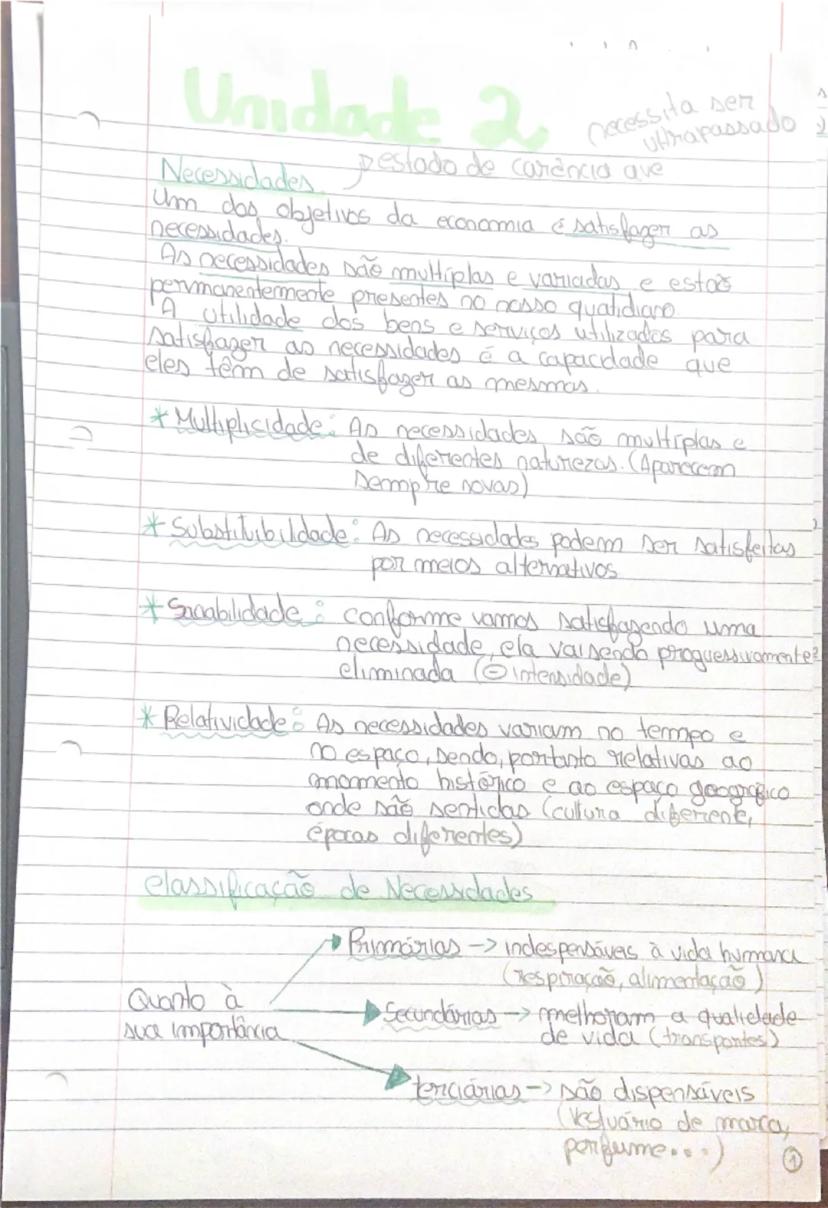 Unidade 2
necessita ser
ultrapassado
Necessidades. → estado de carência que
Um dos objetivos da economia é satisfazer as
necessidades.
As necessidades são multiplas e variadas e estão
permanentemente presentes no nosso quatidiano
A utilidade dos bens e serviços utilizados para
satisfazer as necessidades é a capacidade que
eles têm de satisfazer as mesmas.
* Multiplicidade: As necessidades são multiplas e
de diferentes naturezas. (Aparecem
sempre novas)
* Substituibilidade: As necessidades podem ser satisfeitas
por meios alternativos
* Saciabilidade: conforme vamos satisfazendo uma
necessidade, ela vai sendo proguessivamente
eliminada (⊖ intensidade)
* Relatividade: As necessidades variam no tempo e
no espaço, sendo, portanto relativas ao
momento histórico e ao espaço geográfico
onde são sentidas (cultura diferente,
épocas diferentes)
Classificação de Necessidades
Primárias -> indespensáveis à vida humana
(respiração, alimentação)
Quanto à
sua importância
Secundárias -> melhoram a qualidade
de vida (transportes)
terciárias -> são dispensáveis
(Vestuário de marca,
perfume...)
1